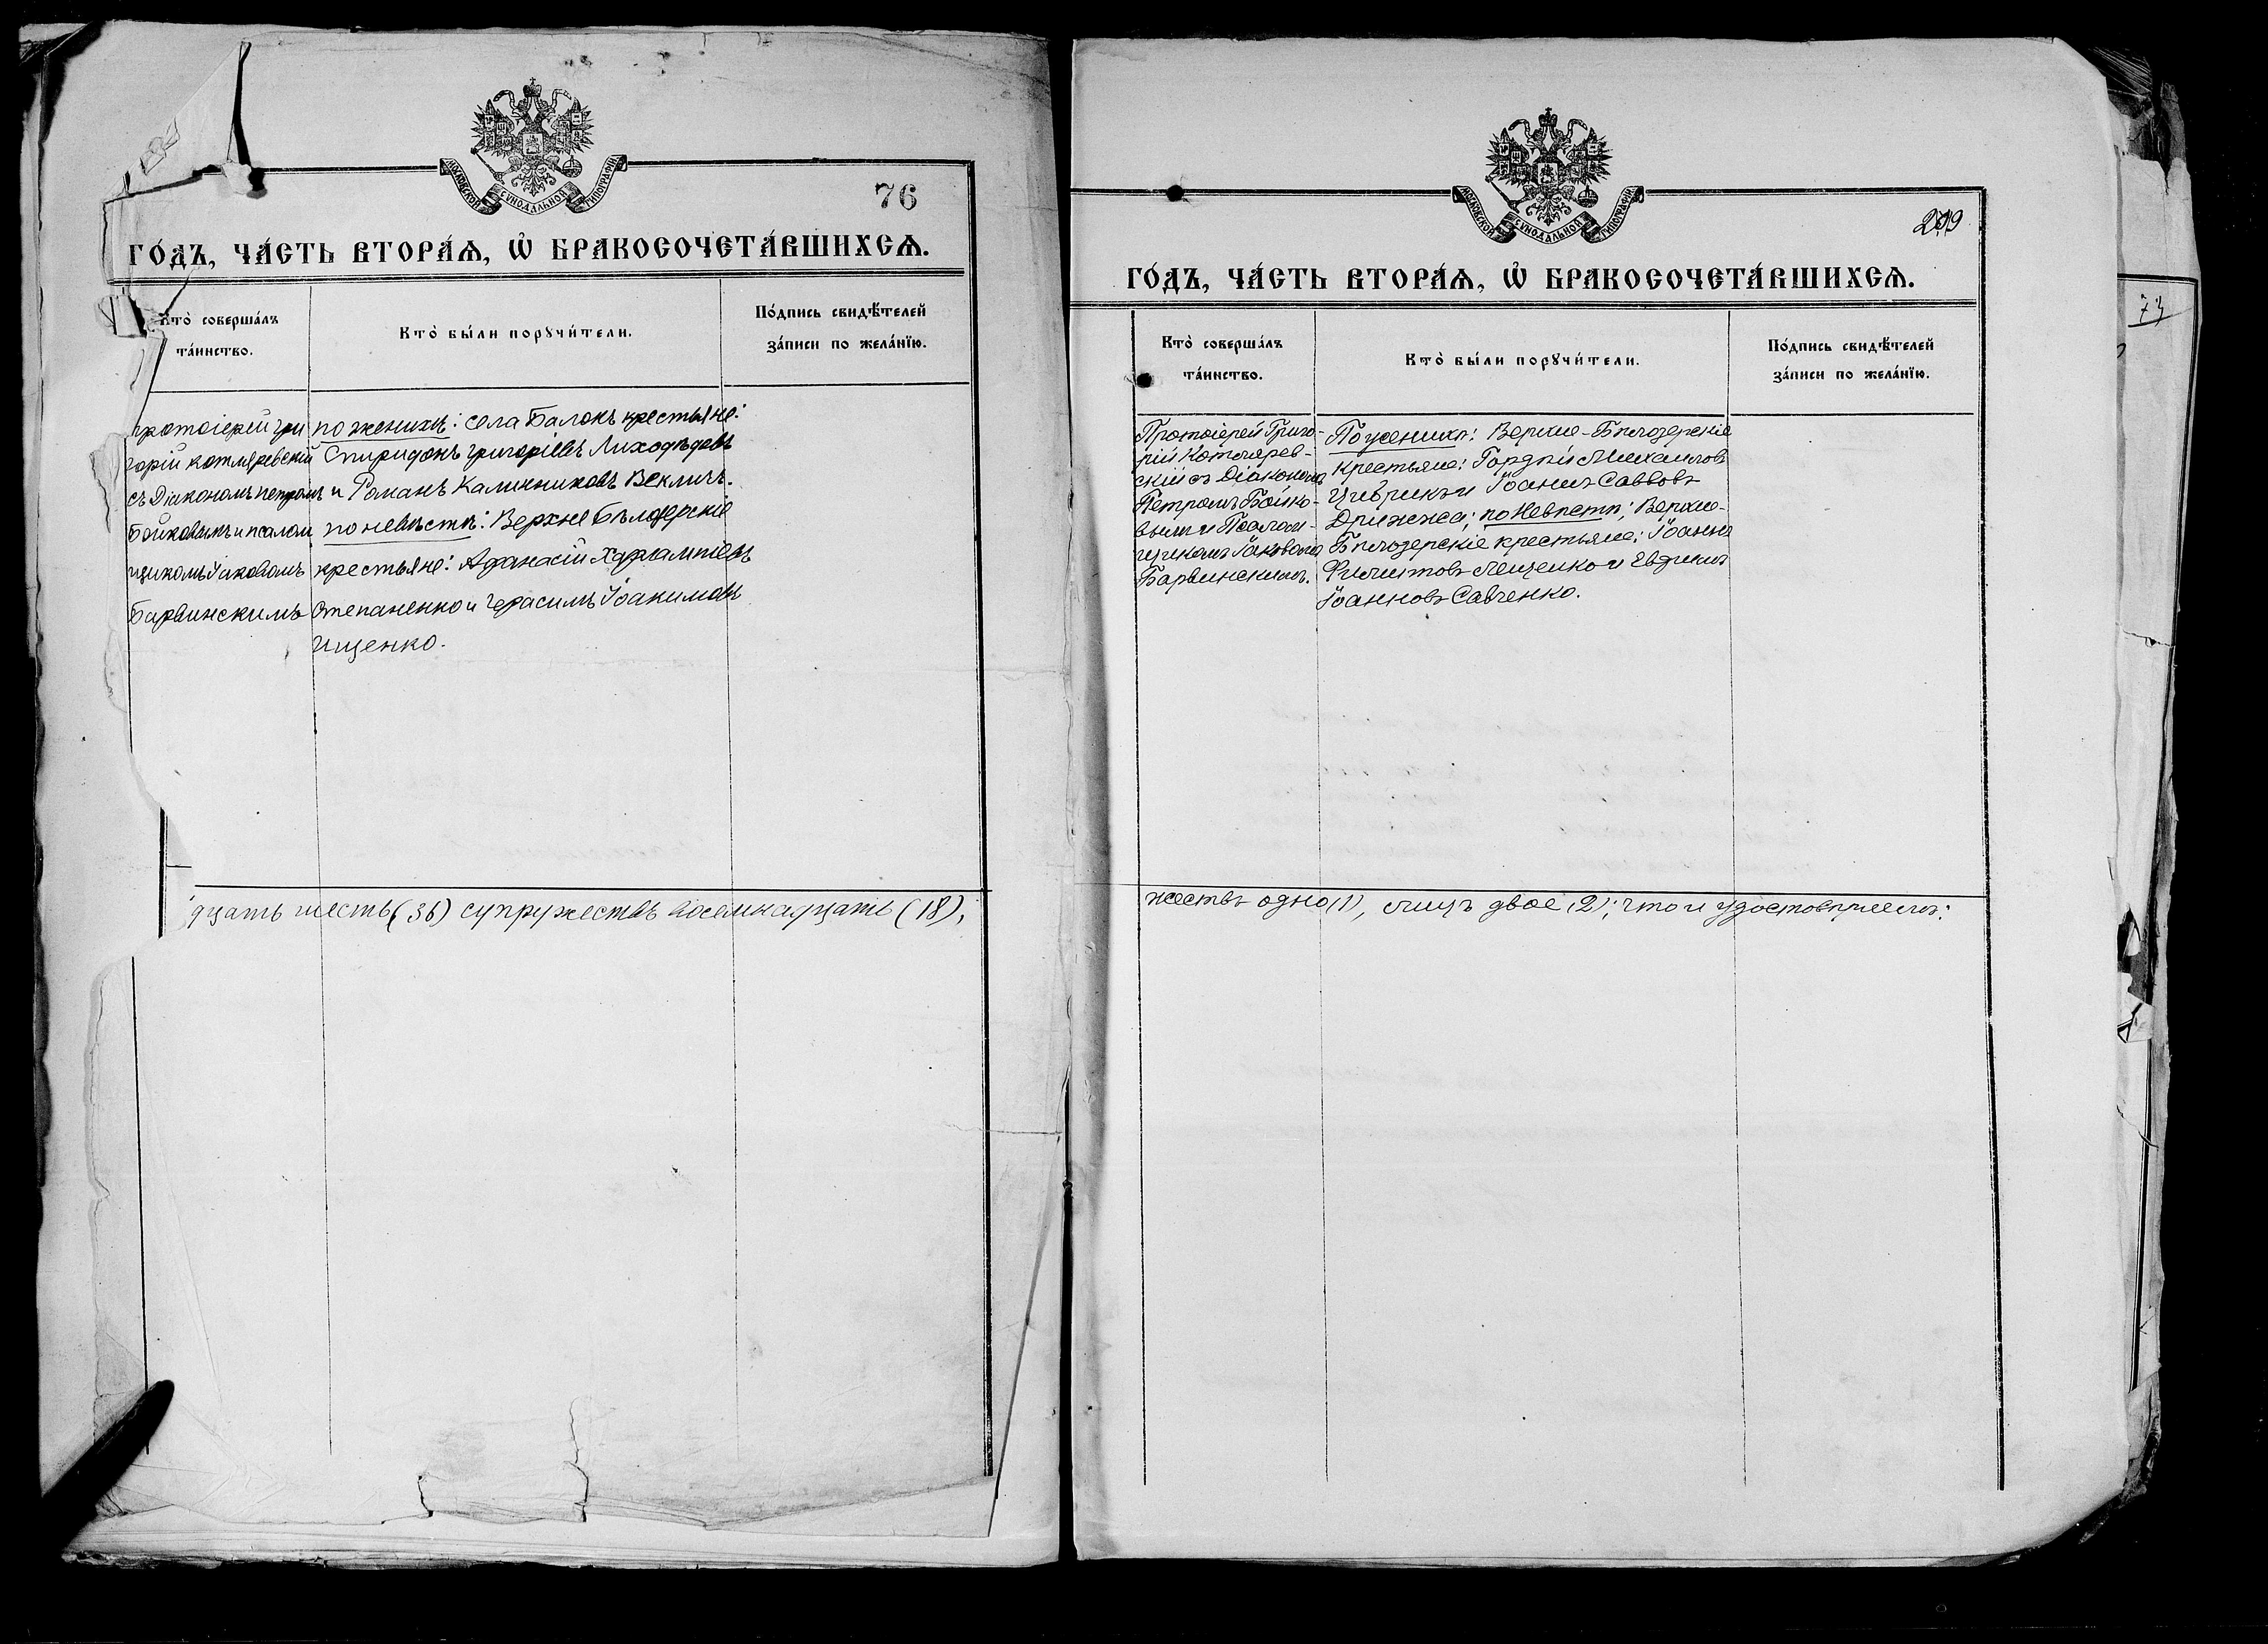 МОСКОВСКОЙ СѴНОДАЛЬНОЙ ТИПОГРАФІИ
76
ГО́ДЪ, ЧА́СТЬ ВТОРА́Ѧ, Ѽ БРАКОСОЧЕТА́ВШИХСѦ.
Кто̀ соверша́лъ
та́инство.
Кто̀ бы́ли порꙋчи́тели.
По́дпись свидѣ́телей
за́писи по жела́нїю.
протоіерей Гри
горій Котляревскій
съ Діакономъ Петромъ
Бойковымъ и псалом
щикомъ Іаковомъ
Барвинскимъ
по женихѣ: села Балокъ крестьяне:
Спиридонъ Григоріевъ Лиходѣдовъ
и Романъ Калинниковъ Векличъ.
по невѣстѣ: Верхне Бѣлозерскіе
крестьяне: Афанасій Харлампіевъ
Степаненко и Герасимъ Іоакимовъ
Ищенко.
дцать шесть (36) супружествъ восемнадцать (18),
МОСКОВСКОЙ СѴНОДАЛЬНОЙ ТИПОГРАФІИ
ГО́ДЪ, ЧА́СТЬ ВТОРА́Ѧ, Ѽ БРАКОСОЧЕТА́ВШИХСѦ.
Кто̀ соверша́лъ
та́инство.
Кто̀ бы́ли порꙋчи́тели.
По́дпись свидѣ́телей
за́писи по жела́нїю.
Протоіерей Григо-
рій Котлярев-
скій съ Діакономъ
Петромъ Бойко-
вымъ и Псалом-
щикомъ Іаковомъ
Барвинскимъ.
По женихѣ: Верхне-Бѣлозерскіе
крестьяне: Гордѣй Михаиловъ
Цибрикъ и Іоаннъ Саввовъ
Дрижжа; по Невѣстѣ; Верхне-
Бѣлозерскіе крестьяне: Іоаннъ
Филиповъ Лещенко и Евфимъ
Іоанновъ Савченко.
жествъ одно (1), лицъ двое (2); что и удостовѣряемъ:
73